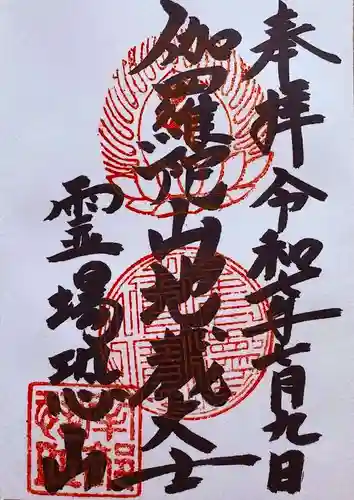 奉拝 令和七年七月九日
伽羅陀山地蔵大士
霊場恐山